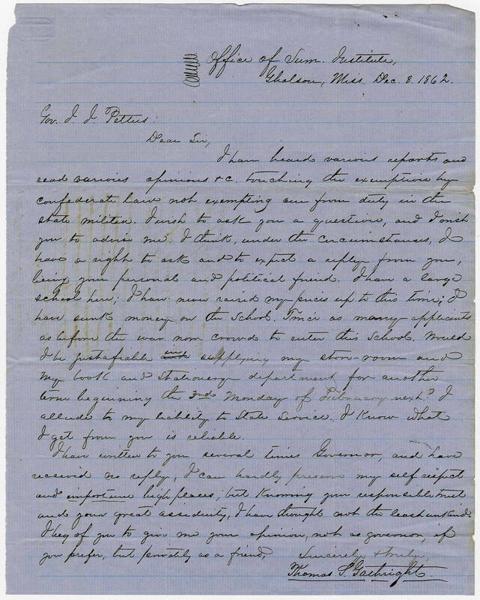 Office of Sum. Institute,
Gholson, Miss. Dec. 8. 1862.
Gov. J. J. Pettus
Dear Sir,
I have heard various reports and
read various opinions &c. touching the exemption by
Confederate law not exempting one from duty in the
state militia. I wish to ask you a question, and I wish
you to advise me. I think, under the circumstances, I
have a right to ask and to expect a reply from you,
being your personal and political friend. I have a large
school here; I have never raised my prices up to this time; I
have sunk money on the School. Twice as many applicants
as before the war now crowd to enter this School. Would
I be justifiable in supplying my store-room and
my book and stationery department for another
term beginning the 3rd Monday of February next? I
allude to my liability to State Service. I know what
I get from you is reliable.
I have written to you several times Governor, and have
received no reply, I can hardly preserve my self respect
and importune high places, but knowing your responsible trust
and your great assiduity, I have thought not the least unkind.
I beg of you to give me your opinion, not as governor, if
you prefer, but privately as a friend,
Sincerely & truly,
Thomas S. Gathright